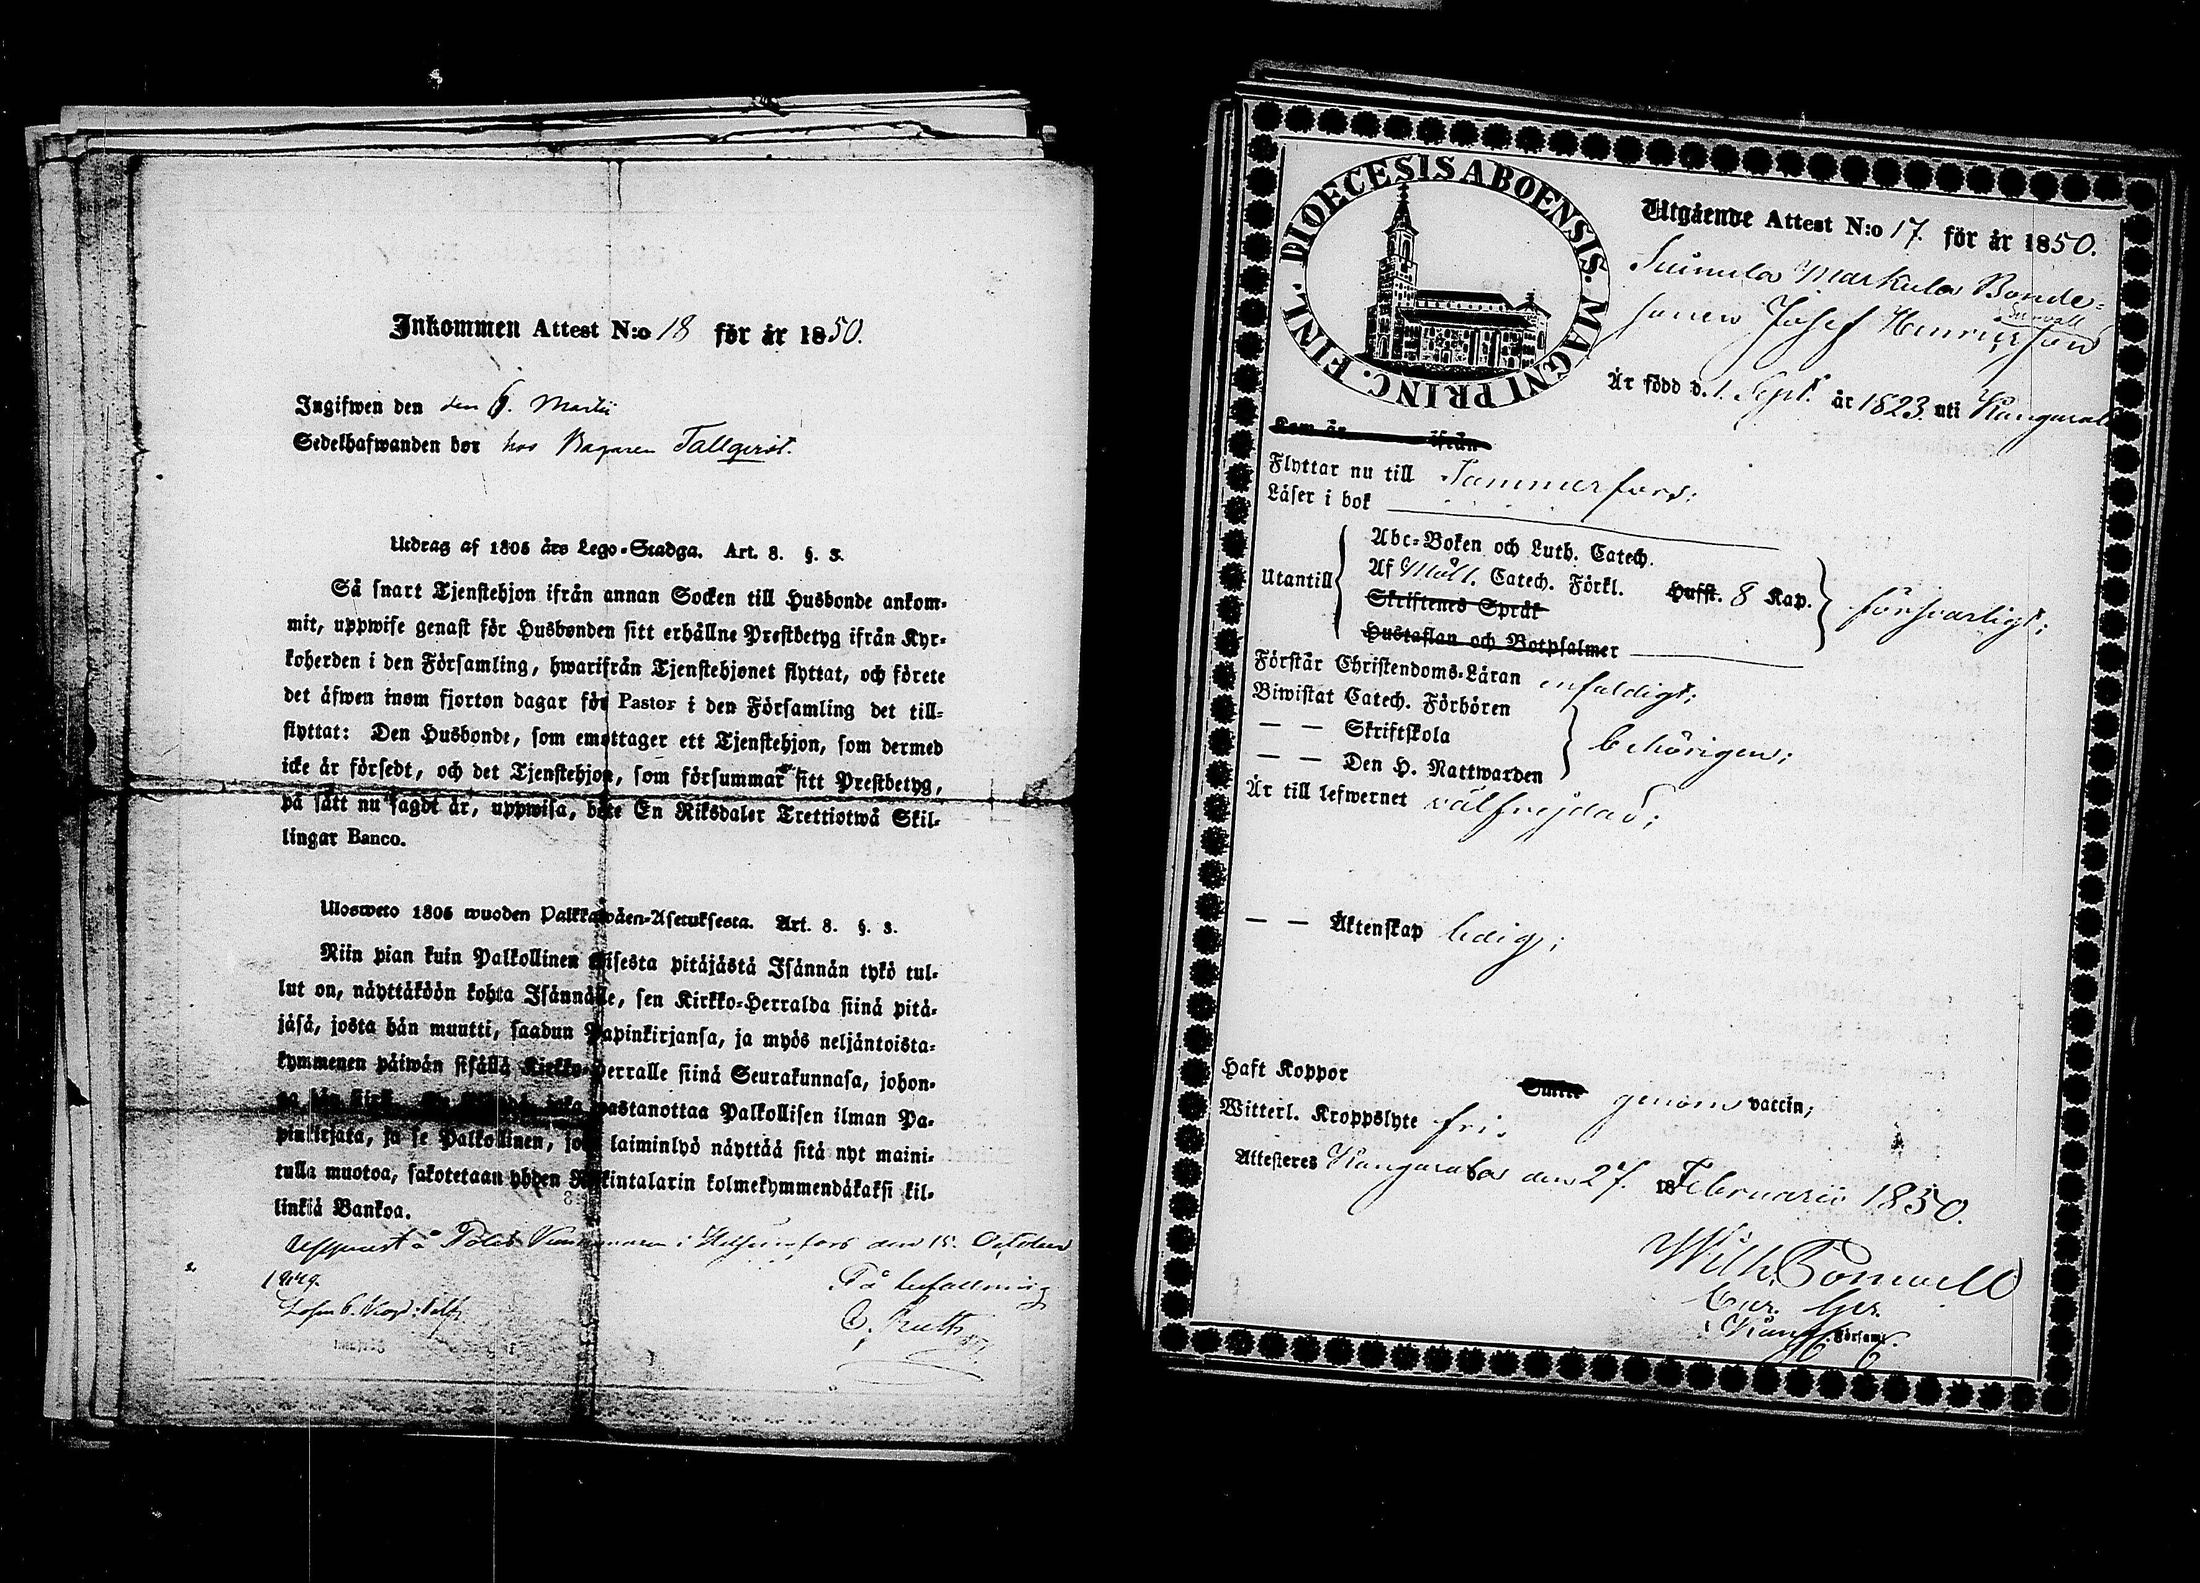 Inkommen Attest N:o 18 för år 1850.
Ingifwen den den 6. Martii
Sedelhafwanden bor hos Bagaren Tallqvist.
Utdrag af 1805 års Lego-Stadga. Art. 8. §. 3.
Så snart Tjenstehjon ifrån annan Socken till Husbonde ankom-
mit, uppwise genast för Husbonden sitt erhållne Prestbetyg ifrån Kyr-
koherden i den Församling, hwarifrån Tjenstehjonet flyttat, och förete
det äfwen inom fjorton dagar för Pastor i den Församling det till-
flyttat: Den Husbonde, som emottager ett Tjenstehjon, som dermed
icke är försedt, och det Tjenstehjon, som försummar sitt Prestbetyg,
på sätt nu sagdt är, uppwisa, böte En Riksdaler Trettiotwå Skil-
lingar Banco.
Ulosweto 1805 wuoden Palkkawäen-Asetuksesta. Art. 8. §. 3.
Niin pian kuin Palkollinen toisesta pitäjästä Isännän tykö tul-
lut on, näyttäköön kohta Isännälle, sen Kirkko-Herralda siinä pitä-
jäsä, josta hän muutti, saadun Papinkirjansa, ja myös neljäntoista-
kymmenen päiwän sisällä Kirkko-Herralle siinä Seurakunnasa, johon-
wastanottaa Palkollisen ilman Pa-
pinkirjata, ja se Palkollinen, joka laiminlyö näyttää sitä nyt maini-
tulla muotoa, sakotetaan yhden Riikintalarin kolmekymmendäkaksi kil-
linkiä Bankoa.
Uppvist å Polis Kammaren i Helsingfors den 15. October
1849.
På befallning
DIOECESIS ABOENSIS. MAGNI PRINC. FINL.
Utgående Attest N:o 17. för år 1850.
Markula Bonde-
sonen Josef Henricsson
Är född d. 1. Sept. år 1823 uti Kangasala
Kom år ifrån
Flyttar nu till Tammerfors;
Läser i bok
Utantill
Abc-Boken och Luth. Catech.
Af Möll. Catech. Förkl. Hufst. 8 Kap. försvarligt;
Skriftenes Språk
Hustaflan och Botpsalmer
Förstår Christendoms-Läran enfaldigt;
Biwistat Catech. Förhören
— — Skriftskola behörigen;
— — Den H. Nattwarden
Är till lefwernet välfrejdad;
— — Äktenskap ledig;
Haft Koppor genom vaccin;
Witterl. Kroppslyte fri.
Attesteres Kangasala den 27. 18 Februarii 1850.
Församl.